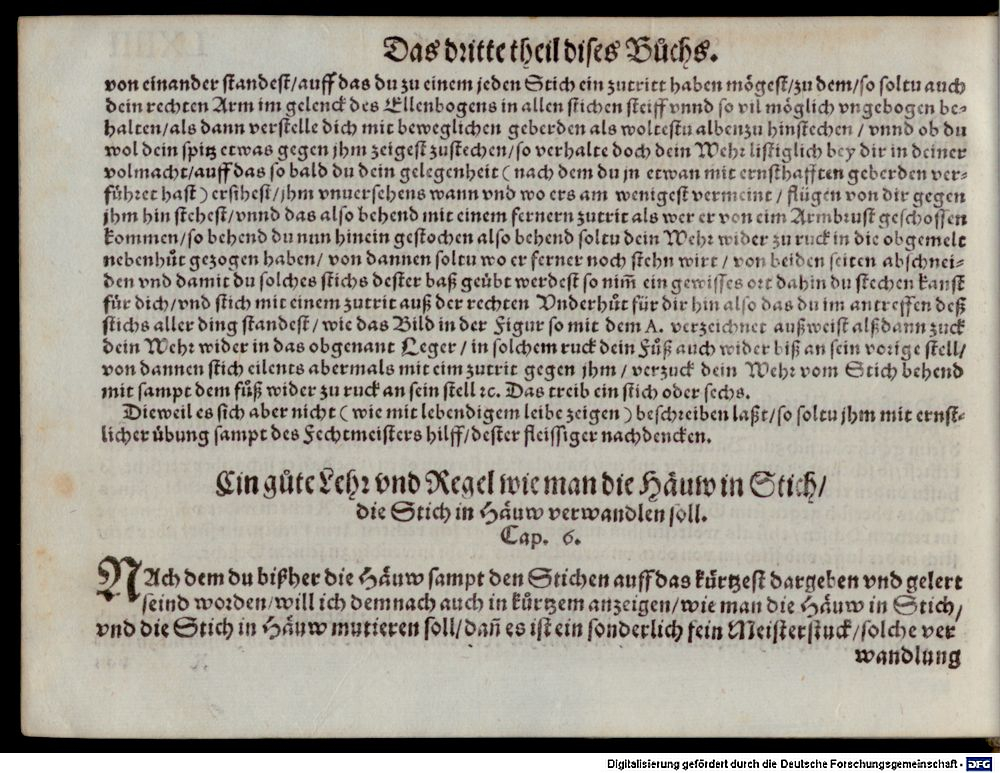 Das dritte theil dises Bůchs.
von einander standest/auff das du zu einem jeden Stich ein zutritt haben mögest/zu dem/so soltu auch
dein rechten Arm im gelenck des Ellenbogens in allen stichen steiff vnnd so vil möglich vngebogen be-
halten/als dann verstelle dich mit beweglichen geberden als woltestu albenzu hinstechen / vnnd ob du
wol dein spitz etwas gegen jhm zeigest zustechen/so verhalte doch dein Wehr listiglich bey dir in deiner
volmacht/auff das so bald du dein gelegenheit ( nach dem du jn etwan mit ernsthafften geberden ver-
führet hast ) ersihest/jhm vnuersehens wann vnd wo ers am wenigest vermeint / flügen von dir gegen
jhm hin stehest/vnnd das also behend mit einem fernern zutrit als wer er von eim Armbrust geschossen
kommen/so behend du nun hinein gestochen also behend soltu dein Wehr wider zu ruck in die obgemelt
nebenhůt gezogen haben/ von dannen soltu wo er ferner noch stehn wirt / von beiden seiten abschnei-
den vnd damit du solches stichs dester baß geübt werdest so nim̃ ein gewisses ort dahin du stechen kanst
für dich/vnd stich mit einem zutrit auß der rechten Vnderhůt für dir hin also das du im antreffen deß
stichs aller ding standest / wie das Bild in der Figur so mit dem A. verzeichnet außweist alßdann zuck
dein Wehr wider in das obgenant Leger / in solchem ruck dein Fůß auch wider biß an sein vorige stell/
von dannen stich eilents abermals mit eim zutrit gegen jhm / verzuck dein Wehr vom Stich behend
mit sampt dem fůß wider zu ruck an sein stell ꝛc. Das treib ein stich oder sechs.
Dieweil es sich aber nicht ( wie mit lebendigem leibe zeigen ) beschreiben laßt/so soltu jhm mit ernst-
licher übung sampt des Fechtmeisters hilff/dester fleissiger nachdencken.
Ein gůte Lehr vnd Regel wie man die Häuw in Stich/
die Stich in Häuw verwandlen soll.
Cap. 6.
NAch dem du bißher die Häuw sampt den Stichen auff das kürtzest dargeben vnd gelert
seind worden/will ich demnach auch in kürtzem anzeigen/wie man die Häuw in Stich/
vnd die Stich in Häuw mutieren soll/dañ es ist ein sonderlich fein Meisterstuck/solche ver
wandlung
Digitalisierung gefördert durch die Deutsche Forschungsgemeinschaft - DFG